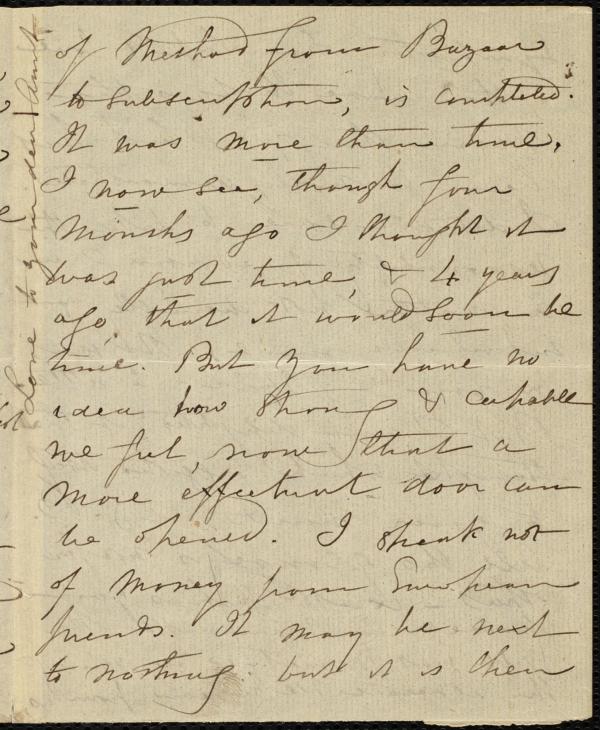 of method from Bazaar
to subscription, is completed.
It was more than time,
I now see, though four
months ago I thought it
was just time, & 4 years
ago, that it would soon be
time. But you have no
idea how strong & capable
we feel, now that a
more effectual door can
be opened. I speak not
of money from European
friends. It may be next
to nothing: but it is their
Love to your dear Aunt